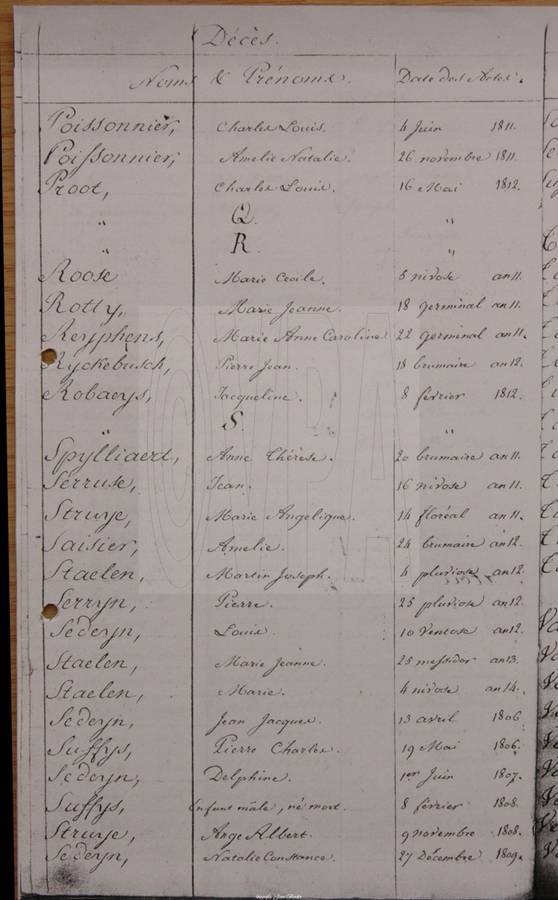 Décès.
Noms & Prénoms. Date des Actes.
Poissonnier, Charles Louis. 4 Juin 1811.
Poissonnier, Amelie Natalie. 26 novembre 1811.
Proot, Charles Louis. 16 Mai 1812.
" Q. "
" R. "
Roose Marie Cecile. 5 nivose an 11.
Rotty, Marie Jeanne. 18 germinal an 11.
Reyphens, Marie Anne Caroline 22 germinal an 11.
Ryckebusch, Pierre Jean. 18 brumaire an 12.
Robaeys, Jacqueline. 8 février 1812.
" S. "
Spylliaert, Anne Thérese. 20 brumaire an 11.
Serruse, Jean. 16 nivose an 11.
Struye, Marie Angelique. 14 floréal an 11.
Saisier, Amelie. 24 brumaire an 12.
Staelen, Martin Joseph. 4 pluviose an 12.
Serryn, Pierre. 25 pluviose an 12.
Sedeyn, Louis. 10 Ventose an 12.
Staelen, Marie Jeanne. 25 messidor an 13.
Staelen, Marie. 4 nivose an 14.
Sedeyn, Jean Jacques. 13 avril 1806
Suffys, Pierre Charles. 19 Mai 1806.
Sedeyn, Delphine. 1er Juin 1807.
Suffys, Enfant mâle, né mort. 8 février 1808.
Struye, Ange Albert. 9 novembre 1808.
Sedeyn, Natalie Constance. 27 Décembre 1809.